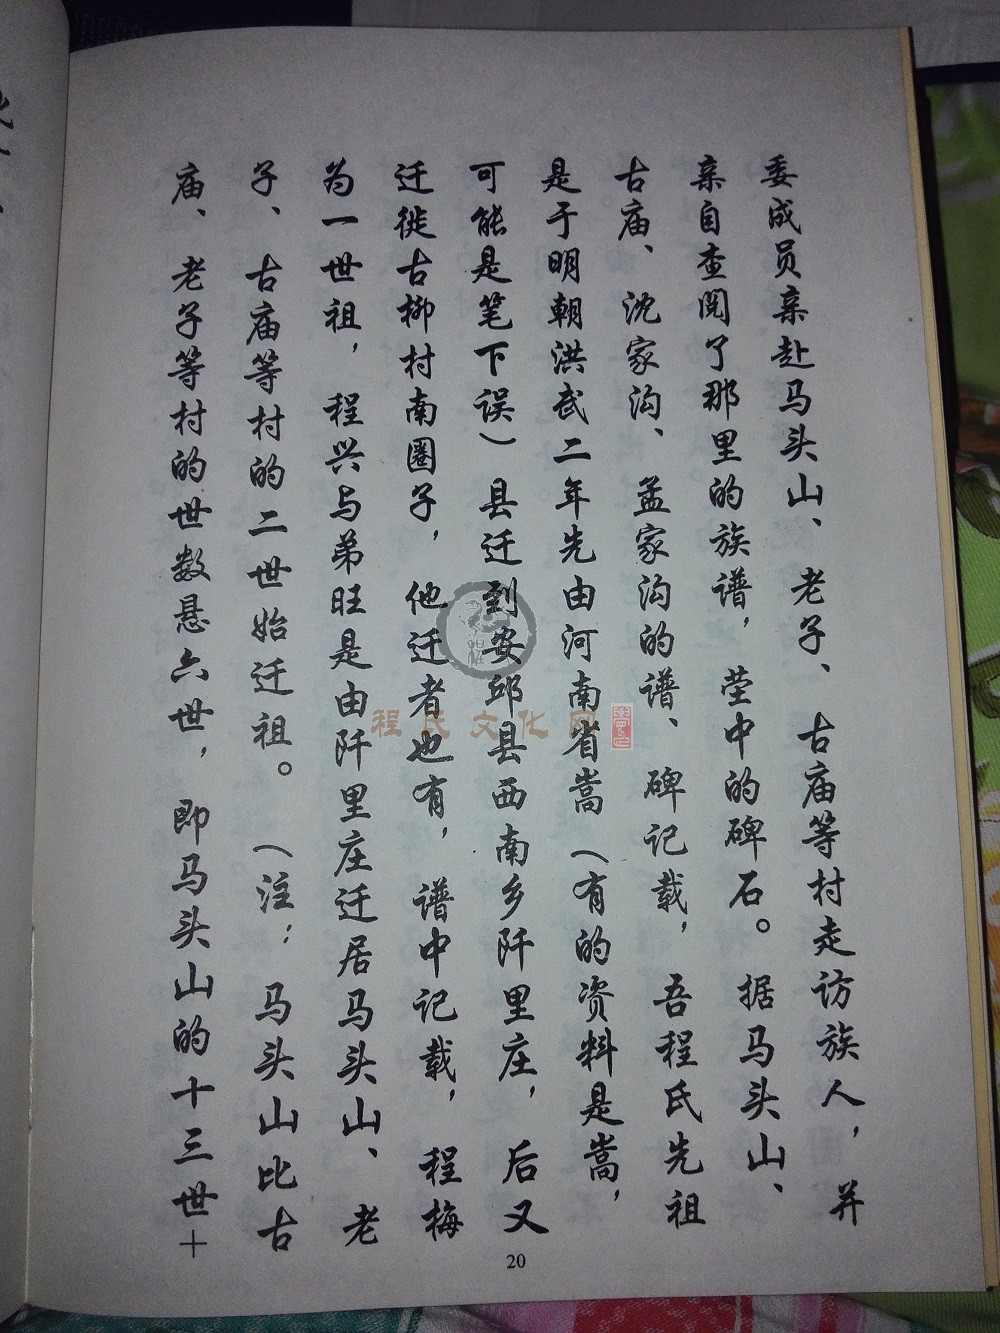 委成员亲赴马头山、老子、古庙等村走访族人，并
亲自查阅了那里的族谱，茔中的碑石。据马头山、
古庙、沈家沟、孟家沟的谱、碑记载，吾程氏先祖
是于明朝洪武二年先由河南省嵩（有的资料是嵩，
可能是笔下误）县迁到安邱县西南乡阡里庄，后又
迁徙古柳村南圈子，他迁者也有，谱中记载，程梅
为一世祖，程兴与弟旺是由阡里庄迁居马头山、老
子、古庙等村的二世始迁祖。（注：马头山比古
庙、老子等村的世数悬六世，即马头山的十三世+
20
程氏文化网